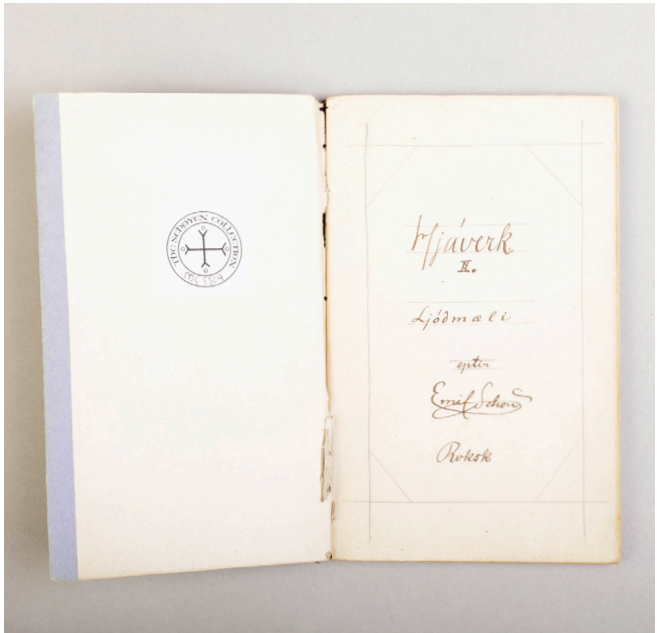 THE SCHØYEN COLLECTION
MS 5304
Hjáverk
II.
Ljóðmæli
eptir
Emil Schou